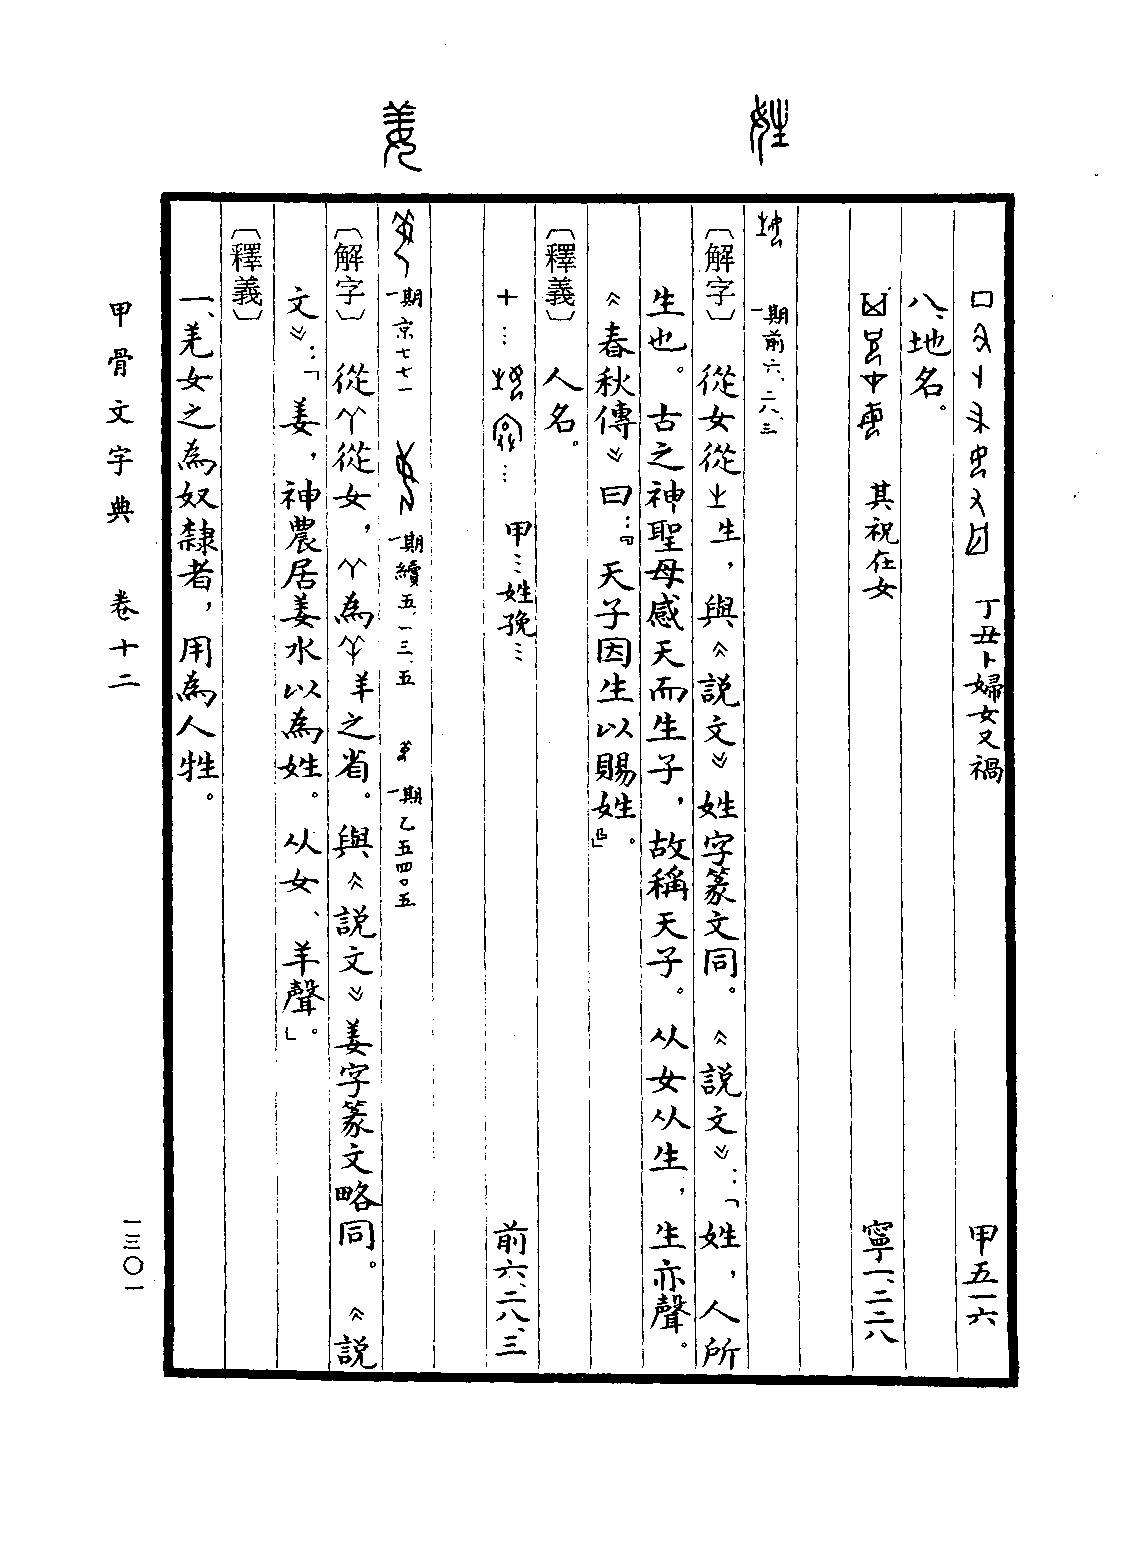 姓
姜
丁丑卜婦女又禍 甲五一六
八、地名。
其祝在女 寧一、二二八
一期前六、二八、三
〔解字〕 從女從生，與《說文》姓字篆文同。《說文》：「姓，人所
生也。古之神聖母感天而生子，故稱天子。从女从生，生亦聲。
《春秋傳》曰：『天子因生以賜姓。』」
〔釋義〕 人名。
甲…姓娩… 前六、二八、三
一期京七七一 一期續五、一三、五 一期乙五四〇五
〔解字〕 從 從女， 為 羊之省。與《說文》姜字篆文略同。《說
文》：「姜，神農居姜水以為姓。从女、羊聲」。
〔釋義〕
一、羌女之為奴隸者，用為人牲。
甲骨文字典 卷十二 一三〇一